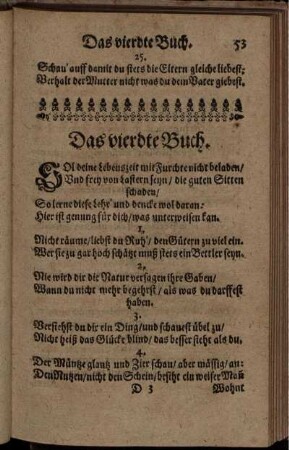 Das vierdte Buch. 53
25.
Schau' auff damit du stets die Eltern gleiche liebest;
Verhalt der Mutter nicht was du dem Vater giebest.
Das vierdte Buch.
SOl deine Lebenszeit mit Furchte nicht beladen/
Und frey von Lastern seyn/ die guten Sitten
schaden/
So lerne diese Lehr' und dencke wol daran:
Hier ist genung für dich/ was unterweisen kan.
1.
Nicht räume/ liebst du Ruh'/ den Gütern zu viel ein.
Wer sie zu gar hoch schätzt muß stets ein Bettler seyn.
2.
Nie wird dir die Natur versagen ihre Gaben/
Wann du nicht mehr begehrst/ als was du darffest
haben.
3.
Versiehst du dir ein Ding/ und schauest übel zu/
Nicht heiß das Glücke blind/ das besser sieht als du.
4.
Der Müntze glantz und Zier schau/ aber mässig/ an:
Den Nutzen/ nicht den Schein/ besiht ein weiser Mañ
D 3 Wohnt